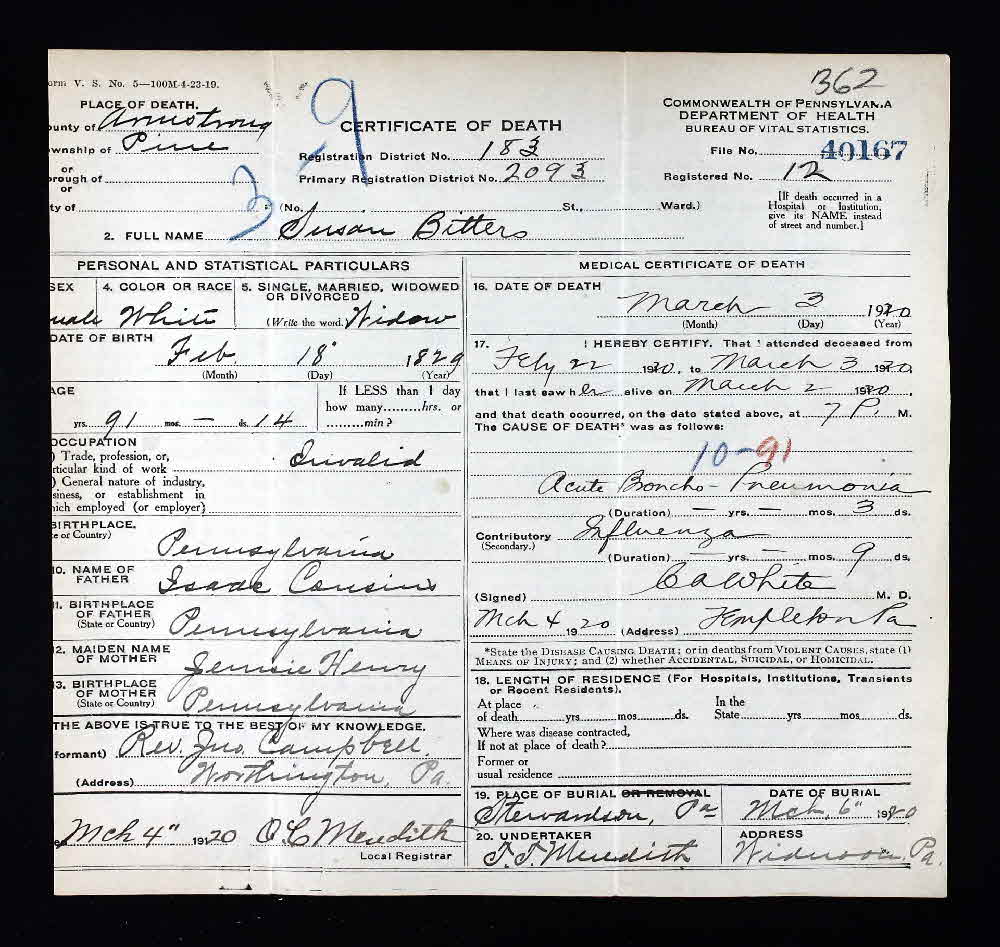 orm V. S. No. 5—100M-4-23-19.
362
PLACE OF DEATH.
ounty of Armstrong
wnship of Pine
or
orough of
or
ty of
3-9
CERTIFICATE OF DEATH
Registration District No. 183
Primary Registration District No. 2093
(No. St., Ward.)
COMMONWEALTH OF PENNSYLVANIA
DEPARTMENT OF HEALTH
BUREAU OF VITAL STATISTICS.
File No. 40167
Registered No. 12
[If death occurred in a
Hospital or Institution,
give its NAME instead
of street and number.]
2. FULL NAME Susan Bitters
PERSONAL AND STATISTICAL PARTICULARS
SEX
male
4. COLOR OR RACE
White
5. SINGLE, MARRIED, WIDOWED
OR DIVORCED
(Write the word.) Widow
DATE OF BIRTH
Feb. 18 1829
(Month) (Day) (Year)
AGE
yrs. 91 mos. — ds. 14
If LESS than 1 day
how many hrs. or
min?
OCCUPATION
) Trade, profession, or,
rticular kind of work Invalid
) General nature of industry,
siness, or establishment in
hich employed (or employer)
BIRTHPLACE.
te or Country)
Pennsylvania
10. NAME OF
FATHER Isaac Cousins
11. BIRTHPLACE
OF FATHER
(State or Country) Pennsylvania
12. MAIDEN NAME
OF MOTHER Jennie Henry
13. BIRTHPLACE
OF MOTHER
(State or Country) Pennsylvania
THE ABOVE IS TRUE TO THE BEST OF MY KNOWLEDGE.
formant) Rev. Jno. Campbell
(Address) Worthington, Pa.
ed Mch 4" 1920 O C Meredith
Local Registrar
MEDICAL CERTIFICATE OF DEATH
16. DATE OF DEATH
March 3 1920
(Month) (Day) (Year)
17. I HEREBY CERTIFY. That I attended deceased from
Feby 22 1920, to March 3 1920,
that I last saw h er alive on March 2 1920,
and that death occurred, on the date stated above, at 7 P. M.
The CAUSE OF DEATH* was as follows:
10-91
Acute Broncho-Pneumonia
(Duration) — yrs. — mos. 3 ds.
Contributory Influenza
(Secondary.)
(Duration) — yrs. — mos. 9 ds.
(Signed) C A White M. D.
Mch 4 1920 (Address) Templeton Pa
*State the DISEASE CAUSING DEATH; or in deaths from VIOLENT CAUSES, state (1)
MEANS OF INJURY; and (2) whether ACCIDENTAL, SUICIDAL, or HOMICIDAL.
18. LENGTH OF RESIDENCE (For Hospitals, Institutions, Transients
or Recent Residents).
At place
of death yrs mos. ds.
In the
State yrs mos. ds.
Where was disease contracted,
If not at place of death?
Former or
usual residence
19. PLACE OF BURIAL OR REMOVAL
Stewardson, Pa
DATE OF BURIAL
Mch. 6" 1920
20. UNDERTAKER
T. T. Meredith
ADDRESS
Widnoon, Pa.